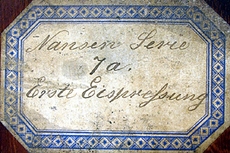 Nansen Serie
7a.
Erste Eispressung